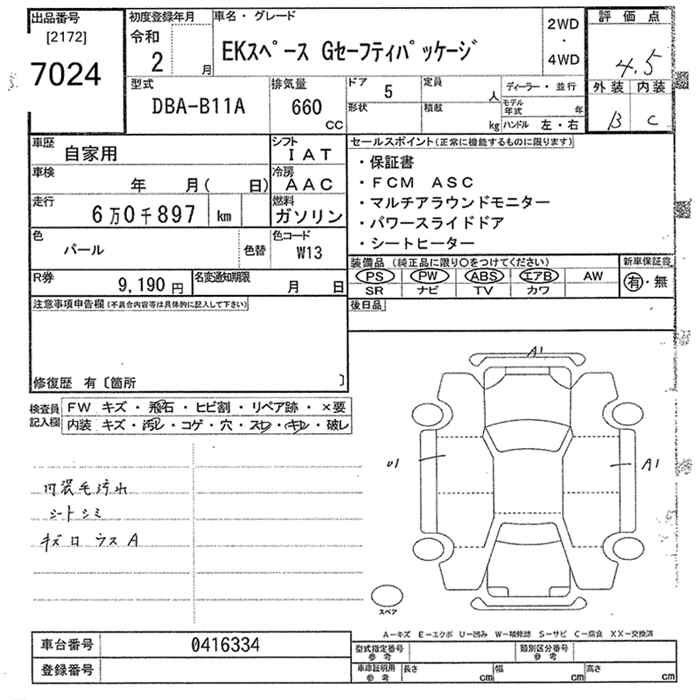 出品番号
[2172]
7024
初度登録年月
令和
2 月
車名・グレード
EKスペース Gセーフティパッケージ
2WD
・
4WD
評価点
4.5
外装 内装
B C
型式
DBA-B11A
排気量
660
CC
ドア
5
定員
人
形状
積載
kg
ディーラー・並行
モデル年式 年
ハンドル 左・右
車歴
自家用
シフト
IAT
車検
年 月( 日)
冷房
AAC
走行
6万0千897 km
燃料
ガソリン
色
パール
色替
色コード
W13
R券
9,190 円
名変通知期限
月 日
セールスポイント(正常に機能するものに限ります)
・保証書
・FCM ASC
・マルチアラウンドモニター
・パワースライドドア
・シートヒーター
装備品 (純正品に限り○をつけてください)
PS PW ABS エアB AW
SR ナビ TV カワ
新車保証書
有・無
後日品
注意事項申告欄(不具合内容等は具体的に記入して下さい)
修復歴 有〔箇所 〕
検査員
記入欄
FW キズ・飛石・ヒビ割・リペア跡・×要
内装 キズ・汚れ・コゲ・穴・スレ・キレ・破レ
内装毛汚れ
シートシミ
キズロウスA
A1
U1
A1
スペア
A−キズ E−エクボ U−凹み W−補修跡 S−サビ C−腐食 XX−交換済
車台番号
0416334
登録番号
型式指定番号
参考
類別区分番号
参考
車庫証明用
参考
長さ cm
幅 cm
高さ cm